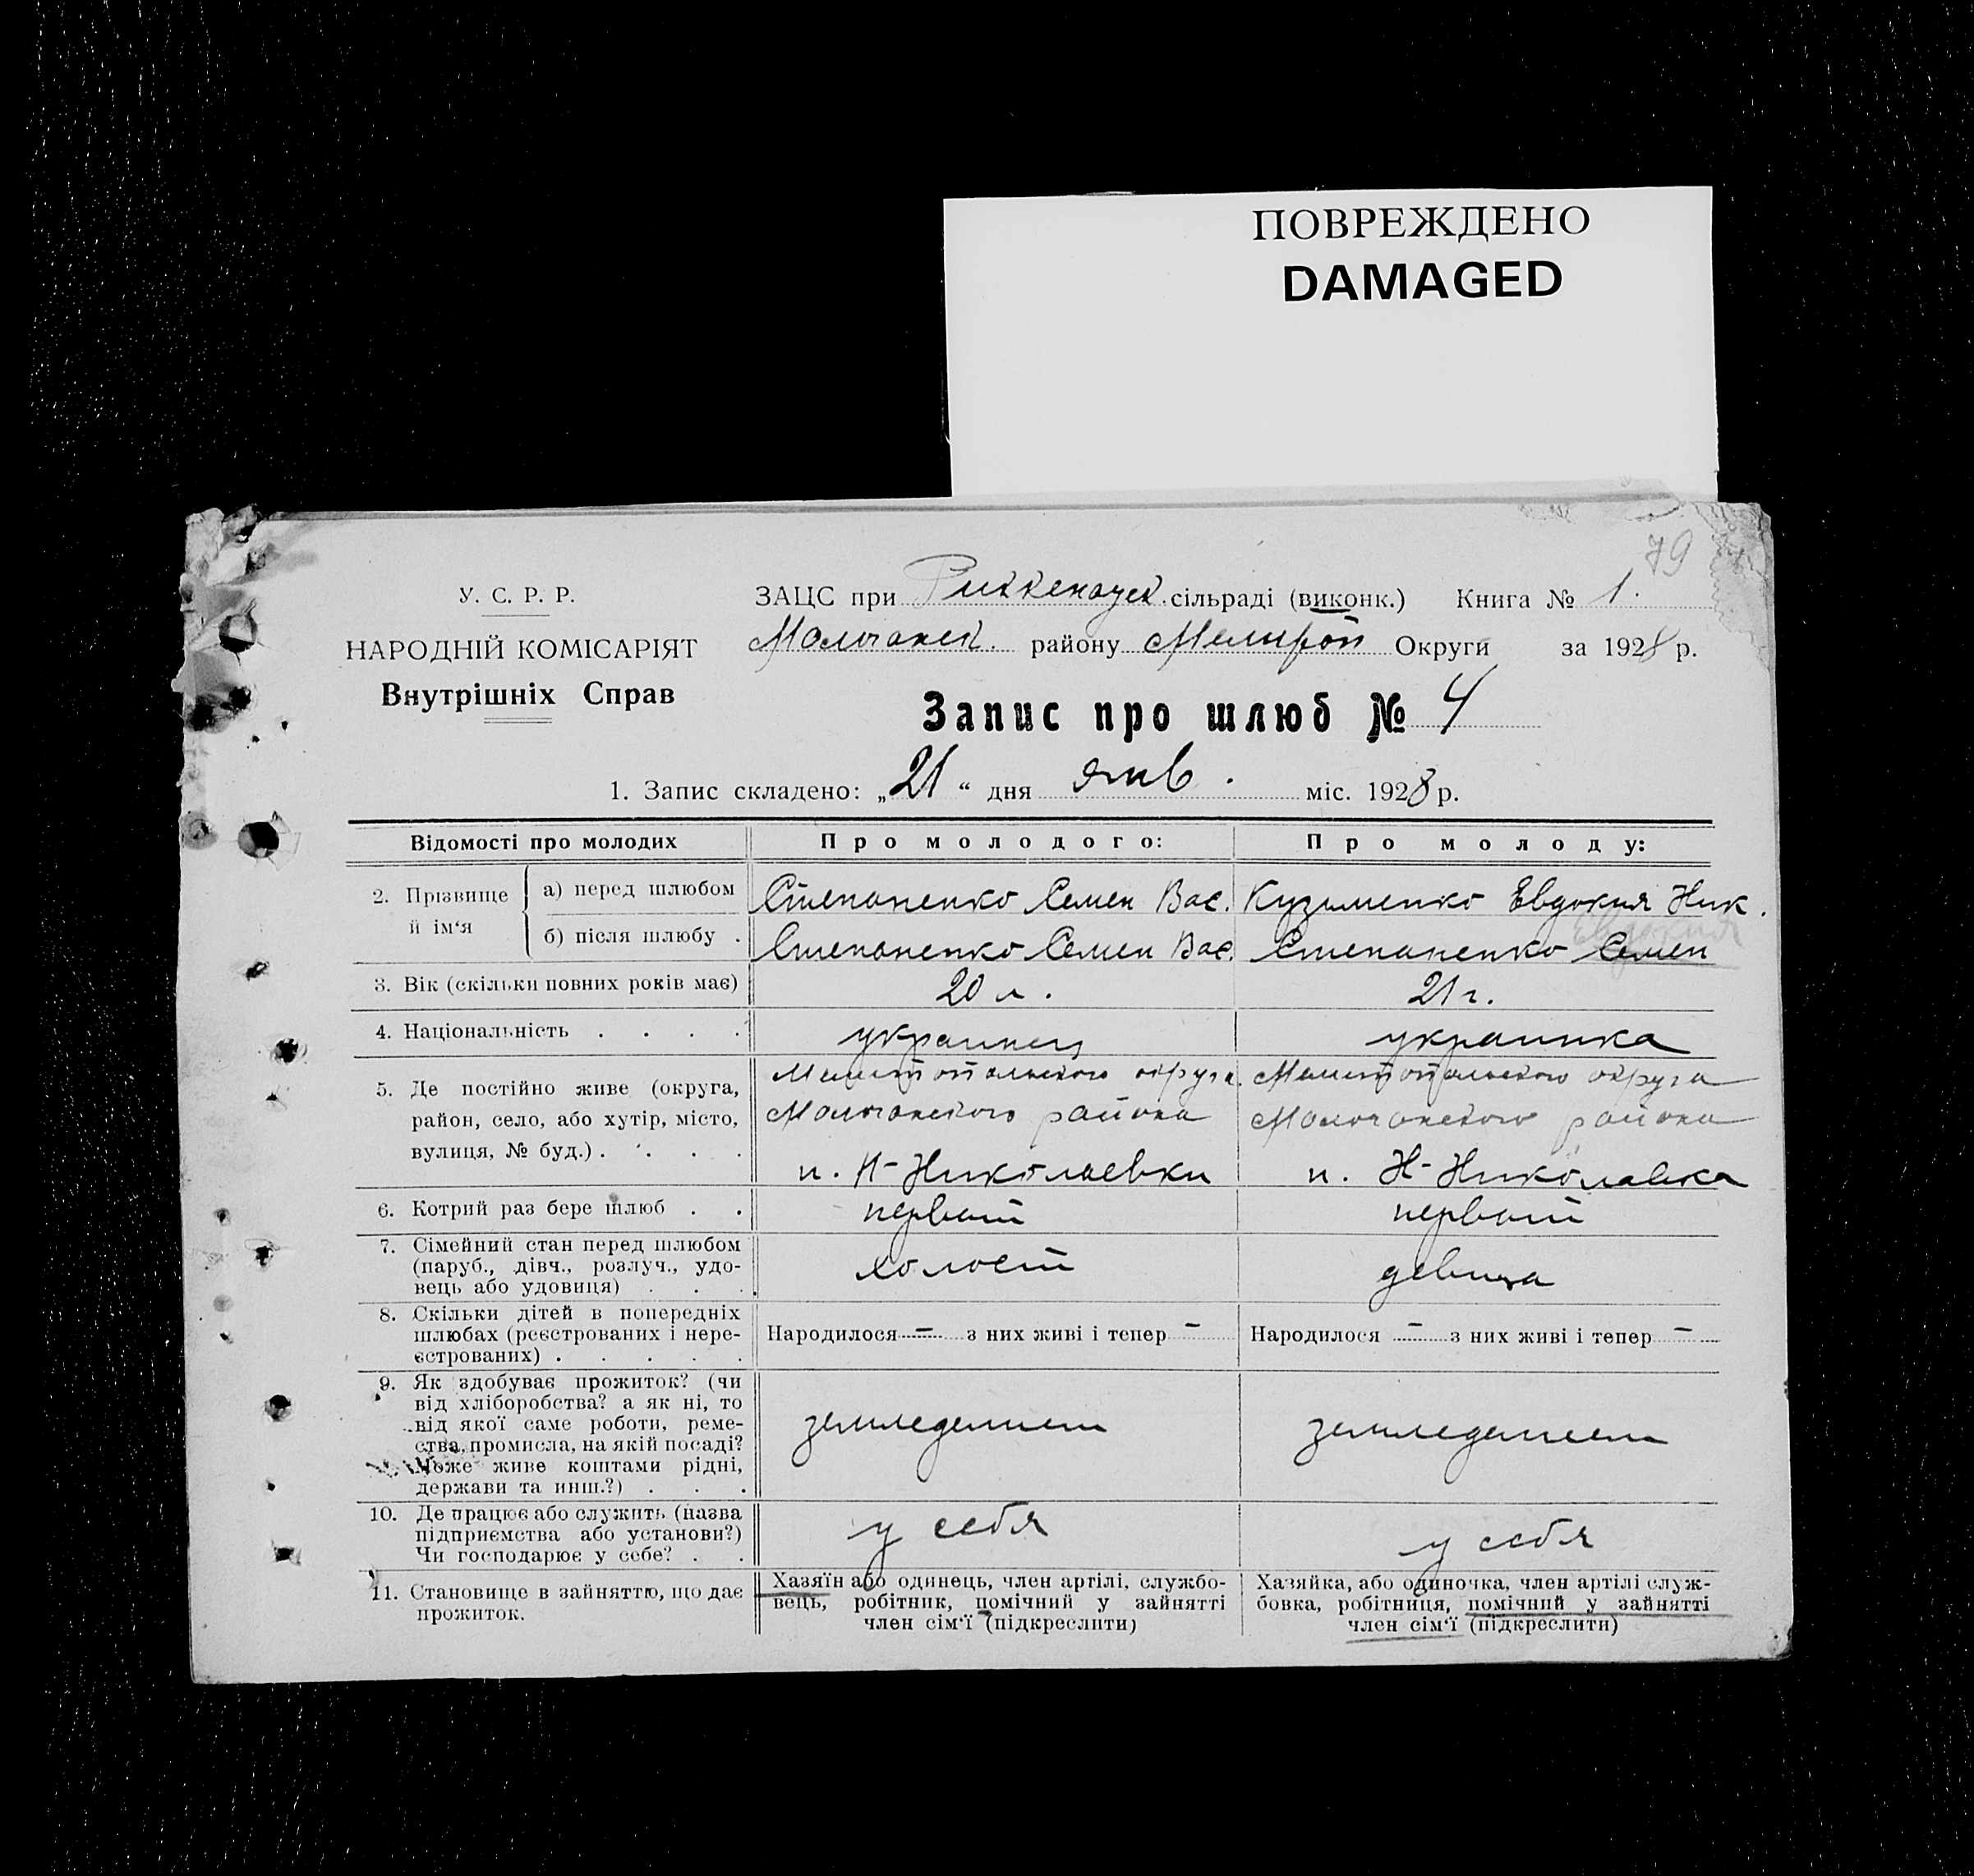 ПОВРЕЖДЕНО
DAMAGED
79
У. С. Р. Р.
НАРОДНІЙ КОМІСАРІЯТ
Внутрішніх Справ
ЗАЦС при Риккенауск. сільраді (виконк.) Книга № 1.
Молочанск. района Мелитоп Округи за 1928 р.
Запис про шлюб № 4
1. Запис складено: „21“ дня янв. міс. 1928 р.
Відомості про молодих
Про молодого:
Про молоду:
2. Прізвище й ім‘я
а) перед шлюбом
Степаненко Семен Вас.
Кузьменко Евдокия Ник.
б) після шлюбу .
Степаненко Семен Вас.
Евдокия
Степаненко Семен
3. Вік (скільки повних років має)
20 л.
21 г.
4. Національність . . . .
украинец
украинка
5. Де постійно живе (округа,
район, село, або хутір, місто,
вулиця, № буд.) . . . .
Мелитопольского округа.
Молочанского района
п. Н-Николаевки
Мелитопольского округа
Молочанского района
п. Н-Николавка
6. Котрий раз бере шлюб . .
первый
первый
7. Сімейний стан перед шлюбом
(паруб., дівч., розлуч., удо-
вець або удовиця) . . .
холост
девица
8. Скільки дітей в попередніх
шлюбах (реєстрованих і нере-
єстрованих) . . . . .
Народилося – з них живі і тепер –
Народилося – з них живі і тепер –
9. Як здобуває прожиток? (чи
від хліборобства? а як ні, то
від якої саме роботи, реме-
ства, промисла, на якій посаді?
Може живе коштами рідні,
держави та инш.?) . . .
земледелием
земледелием
10. Де працює або служить (назва
підприємства або установи?)
Чи господарює у себе? . .
у себя
у себя
11. Становище в зайняттю, що дає
прожиток.
Хазяїн або одинець, член артілі, службо-
вець, робітник, помічний у зайнятті
член сім‘ї (підкреслити)
Хазяйка, або одиночка, член артілі служ-
бовка, робітниця, помічний у зайнятті
член сім‘ї (підкреслити)